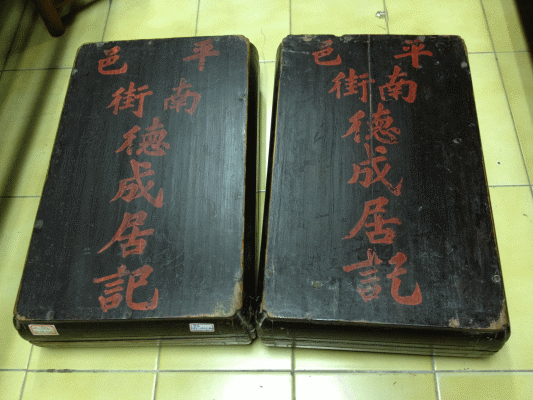 平邑
南街
德成居記
平邑
南街
德成居記